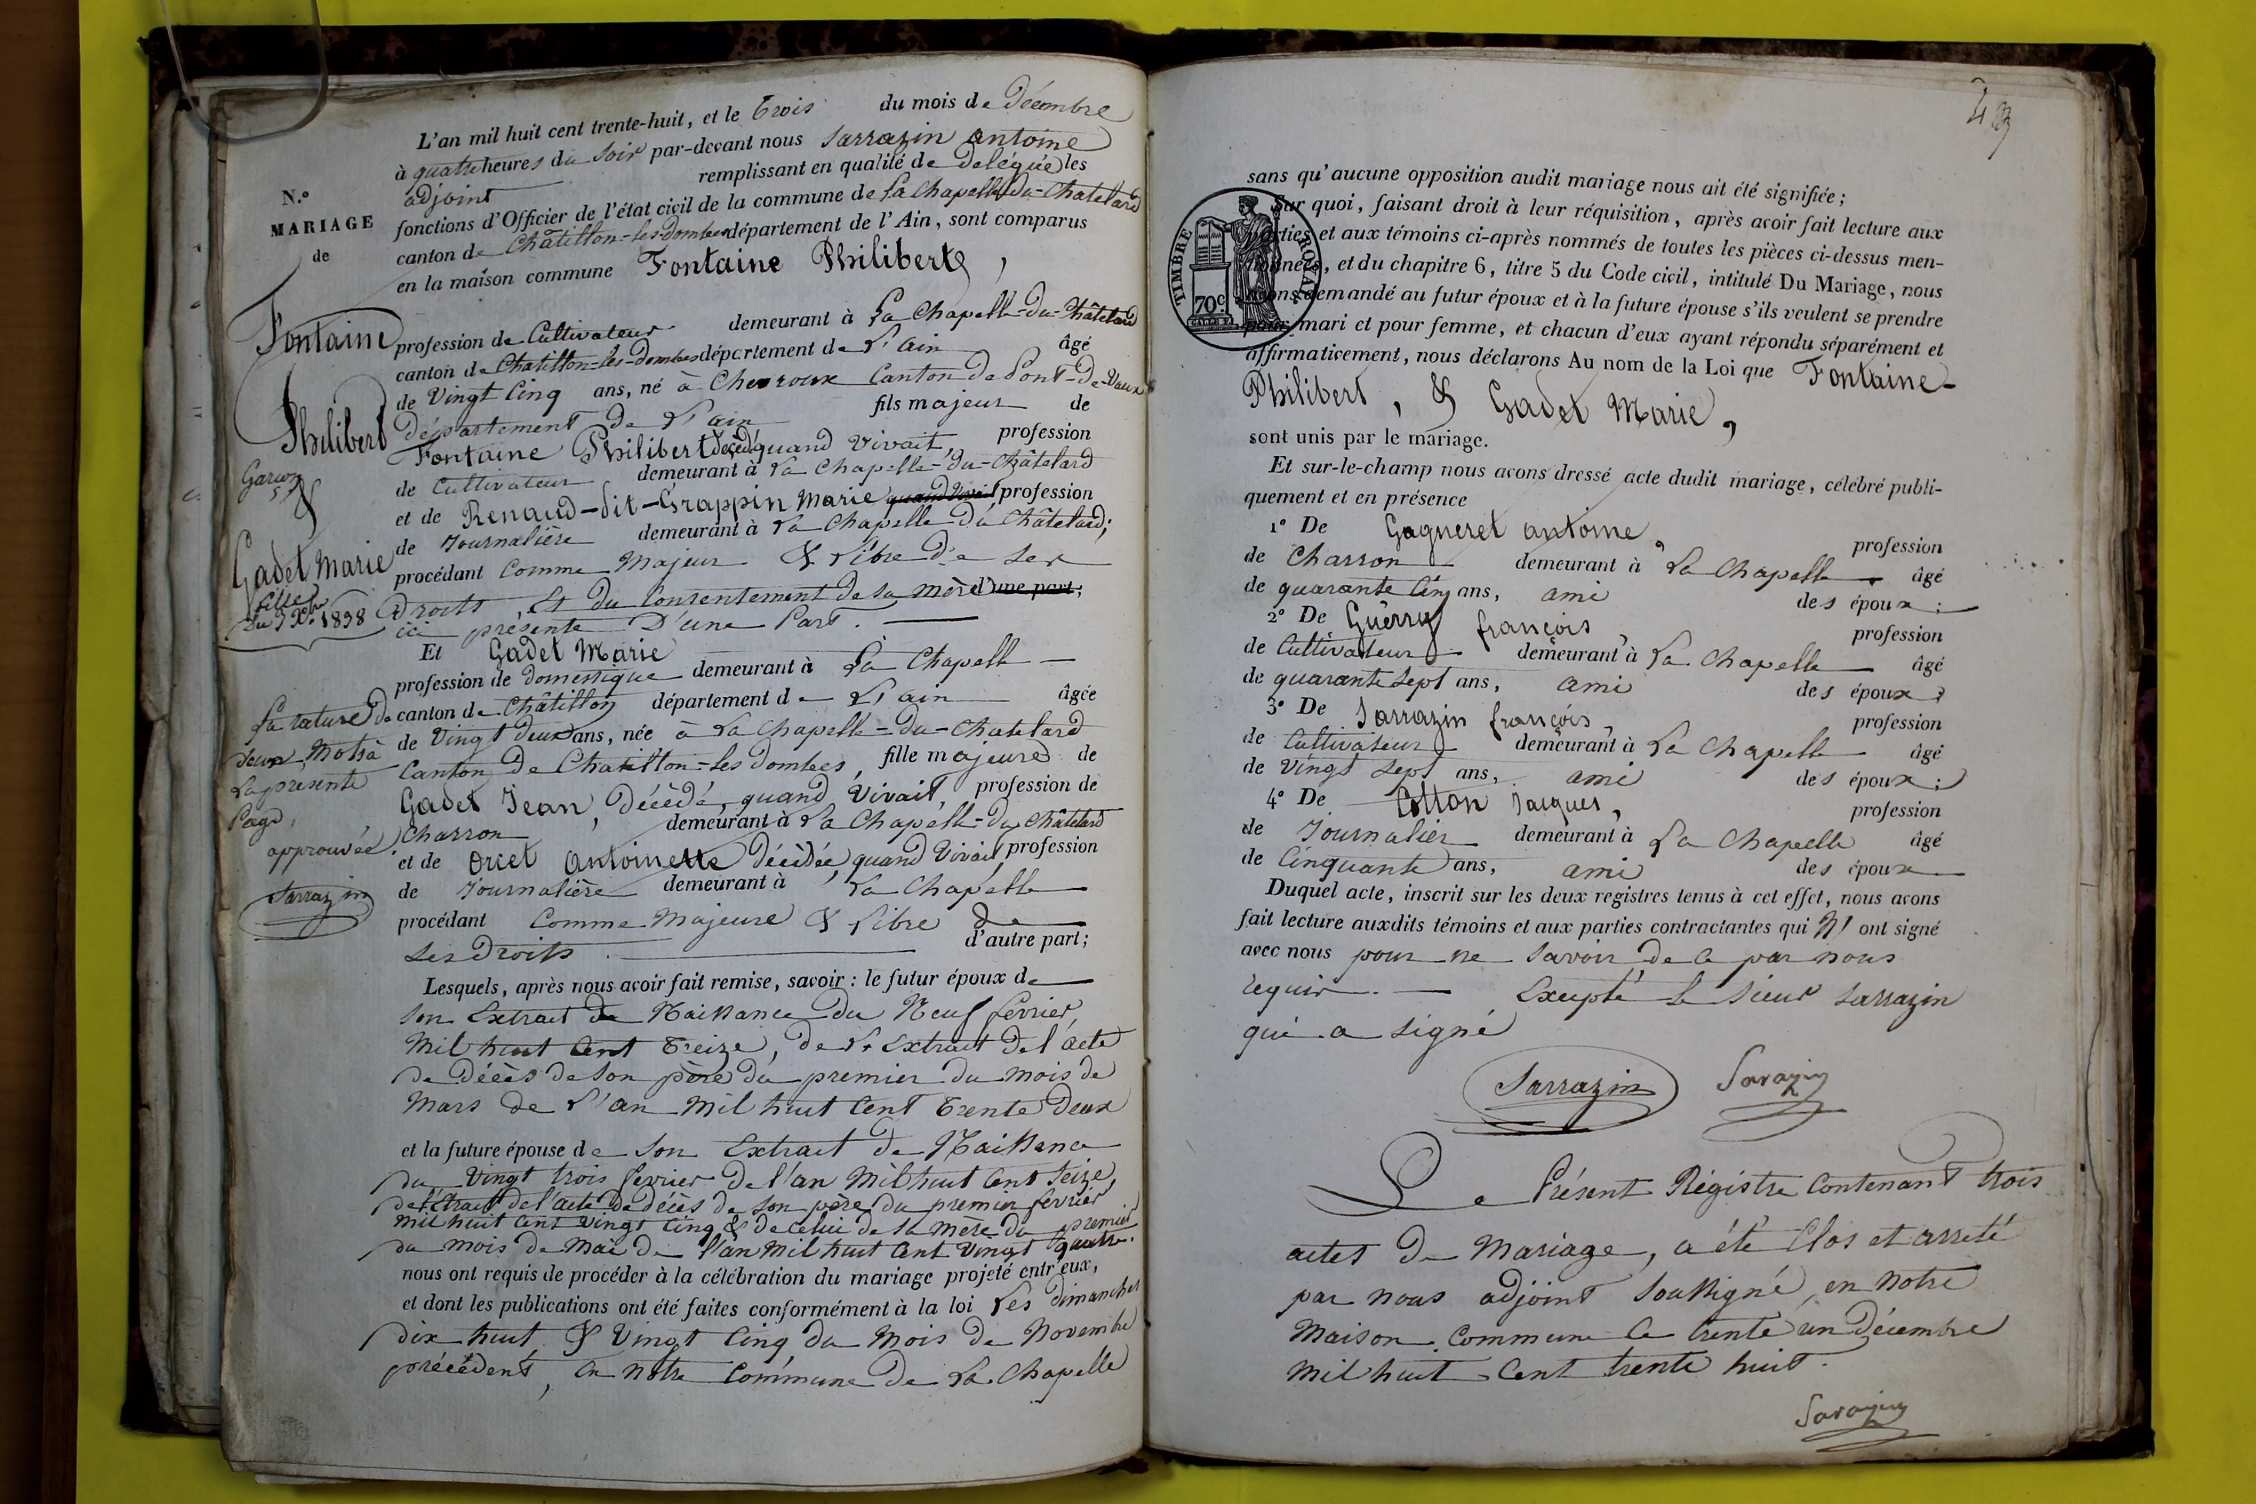 L'an mil huit cent trente-huit, et le Trois du mois de Décembre
à quatre heures du Soir par-devant nous Sarrazin Antoine
adjoint remplissant en qualité de Deléguée les
fonctions d'Officier de l'état civil de la commune de La Chapelle-Du-Chatelard
canton de Châtillon-les-Dombes département de l'Ain, sont comparus
en la maison commune Fontaine Philibert,
profession de Cultivateur demeurant à La Chapelle-Du-Châtelard
canton de Chatillon-les-Dombes département de L'ain âgé
de Vingt Cinq ans, né à Chevroux Canton De Pont-De-Vaux
Département De L'ain fils majeur de
Fontaine Philibert décédé, quand Vivait, profession
de Cultivateur demeurant à La Chapelle-Du-Châtelard
et de Renaud-Dit-Grappin Marie quand Vivait profession
de Journalière demeurant à La Chapelle Du Châtelard;
procédant Comme Majeur & Libre De ses
Droits, et Du Consentement de sa mère d'une part;
ici présente D'une Part.
Et Gadet Marie
profession de Domestique demeurant à La Chapelle
canton de Châtillon département de L'ain âgée
de Vingt Deux ans, née à La Chapelle-Du-Chatelard
Canton De Chatillon-les Dombes, fille majeure de
Gadet Jean, Décédé, quand Vivait, profession de
Charron demeurant à La Chapelle-Du Châtelard
et de Orcet Antoinette Décédée, quand Vivait, profession
de Journalière demeurant à La Chapelle
procédant Comme Majeure & Libre De
ses Droits. d'autre part;
Lesquels, après nous avoir fait remise, savoir: le futur époux de
Son Extrait De Naissance Du Neuf février,
Mil huit Cent Treize, De L'Extrait De l'acte
De Décès De Son père Du premier Du mois De
Mars De L'an Mil huit Cent Trente Deux
et la future épouse de Son Extrait De Naissance
Du Vingt trois février De l'an Mil huit Cent Seize,
De l'Extrait De l'acte De Décès De Son père Du premier février
Mil huit Cent Vingt Cinq & De Celui De Sa Mère Du premier
Du mois De Mai De l'an Mil huit Cent Vingt quatre.
nous ont requis de procéder à la célébration du mariage projeté entr'eux,
et dont les publications ont été faites conformément à la loi Les Dimanches
Dix huit & Vingt Cinq Du Mois De Novembre
précédent, En Notre Commune De La Chapelle
N.º
MARIAGE
de
Fontaine
Philibert
Garçon
&
Gadet Marie
fille
Du 3 Xbre 1838
La rature De
Deux Mots à
La présente
Page,
approuvée.
Sarrazin
sans qu'aucune opposition audit mariage nous ait été signifiée;
Sur quoi, faisant droit à leur réquisition, après avoir fait lecture aux
parties et aux témoins ci-après nommés de toutes les pièces ci-dessus men-
tionnées, et du chapitre 6, titre 5 du Code civil, intitulé Du Mariage, nous
avons demandé au futur époux et à la future épouse s'ils veulent se prendre
pour mari et pour femme, et chacun d'eux ayant répondu séparément et
affirmativement, nous déclarons Au nom de la Loi que Fontaine-
Philibert, & Gadet Marie,
sont unis par le mariage.
TIMBRE ROYAL
70c
Et sur-le-champ nous avons dressé acte dudit mariage, célébré publi-
quement et en présence
1º De Gagneret Antoine, profession
de Charron demeurant à La Chapelle âgé
de quarante Cinq ans, ami des époux;
2º De Guerry François profession
de Cultivateur demeurant à La Chapelle âgé
de quarante Sept ans, ami des époux;
3º De Sarrazin François, profession
de Cultivateur demeurant à La Chapelle âgé
de Vingt Sept ans, ami des époux;
4º De Cotton Jacques, profession
de Journalier demeurant à La Chapelle âgé
de Cinquante ans, ami des époux
Duquel acte, inscrit sur les deux registres tenus à cet effet, nous avons
fait lecture auxdits témoins et aux parties contractantes qui N' ont signé
avec nous pour ne Savoir De Ce par nous
requis. Excepté le Sieur Sarrazin
qui a signé
Sarrazin Sarazin
Le Présent Régistre Contenant trois
actes De Mariage, a été Clos et arreté
par nous adjoint Soussigné, en Notre
Maison Commune Ce trente un Décembre
Mil huit Cent trente huit.
Sarazin